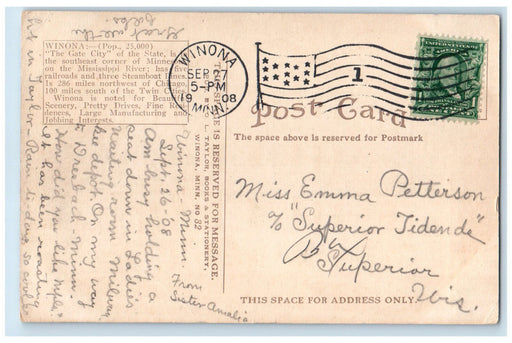 WINONA:—(Pop., 25,000)
"The Gate City" of the State, is
the southeast corner of Minne
on the Mississippi River; has five
railroads and three Steamboat lines.
Is 286 miles northwest of Chicago
100 miles south of the Twin Cities
Winona is noted for Beau
Scenery, Pretty Drives, Fine
dences, Large Manufacturing and
Jobbing Interests.
THIS SPACE IS RESERVED FOR MESSAGE.
L. TAYLOR, BOOKS & STATIONERY,
WINONA, MINN. NO 32
WINONA
SEP 27
5-PM
1908
MINN.
1
Post Card
The space above is reserved for Postmark
Winona - Minn.
Sept. 26-'08
Am busy holding a
seat down in Ladies
Waiting room Milwau
kee depot. On my way
to Dresbach - Minn.
How did you like Mpls?
From
Sister Amalia
Miss Emma Petterson
% "Superior Tidende"
Superior
Wis.
THIS SPACE FOR ADDRESS ONLY.